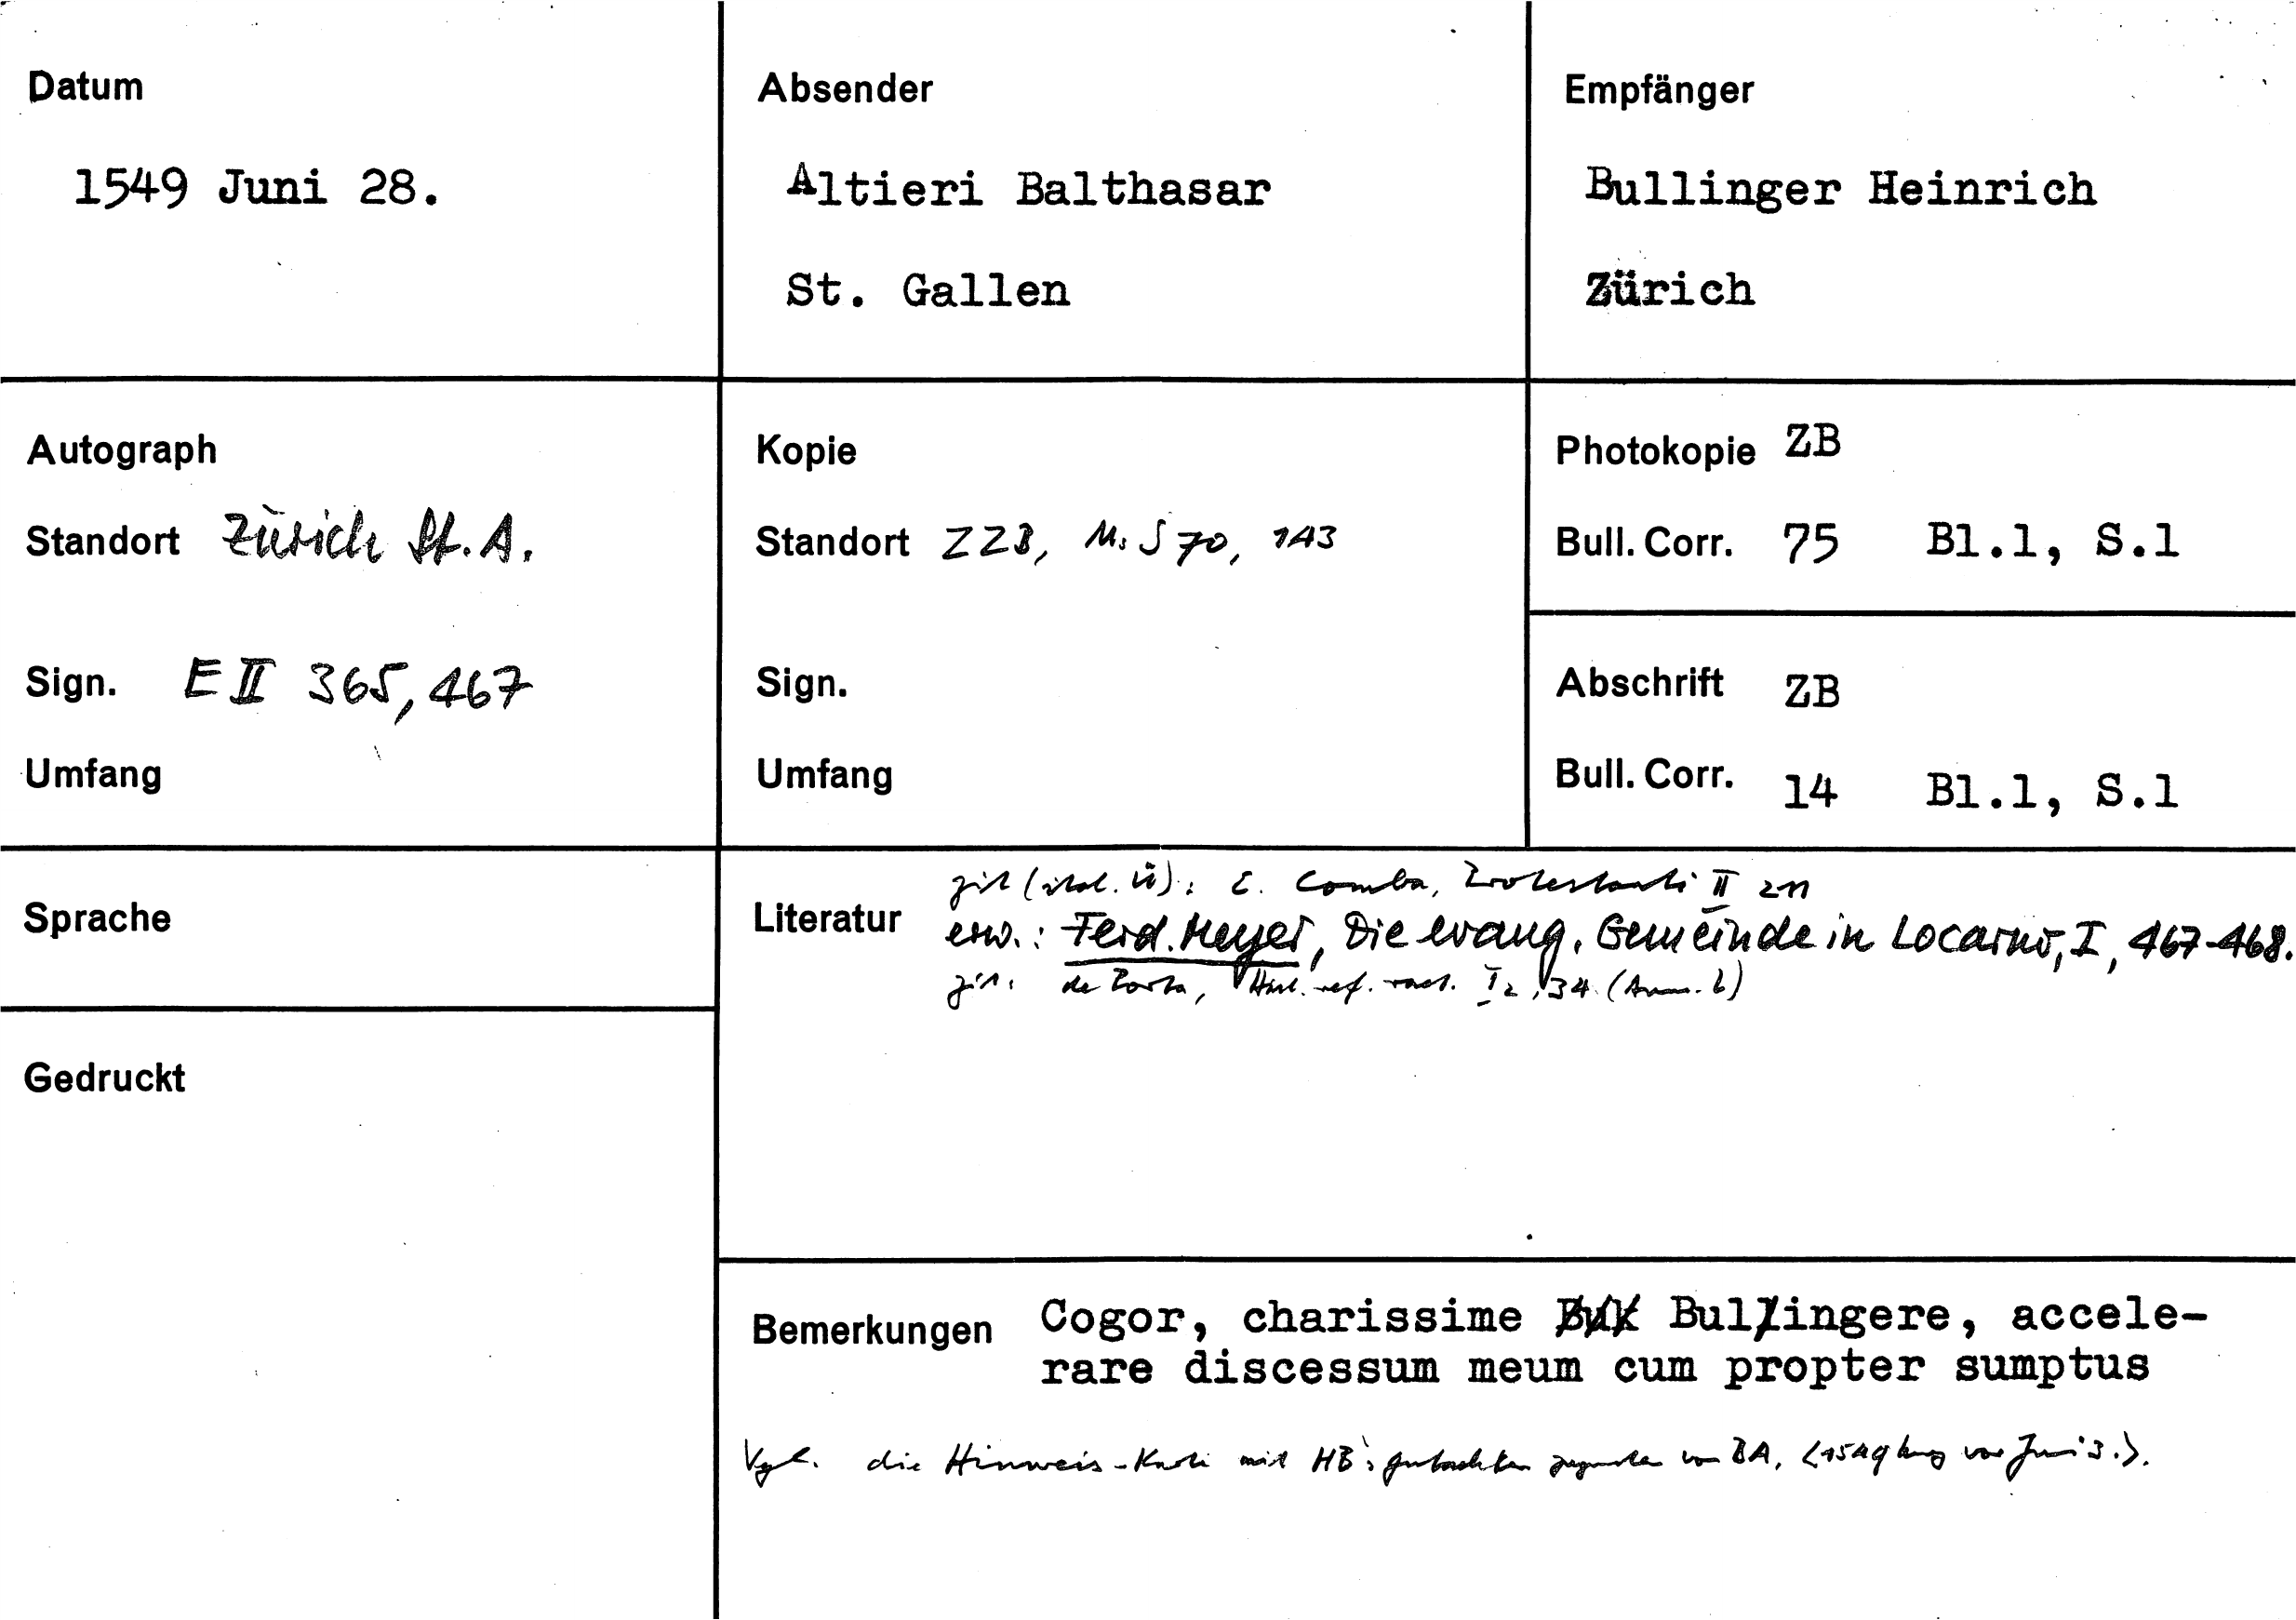 Datum
1549 Juni 28.
Absender
Altieri Balthasar
St. Gallen
Empfänger
Bullinger Heinrich
Zürich
Autograph
Standort Zürich St.A.
Sign. E II 365, 467
Umfang
Kopie
Standort ZZB, Ms S 70, 143
Sign.
Umfang
Photokopie ZB
Bull. Corr. 75 Bl.1, S.1
Abschrift ZB
Bull. Corr. 14 Bl.1, S.1
Sprache
Gedruckt
Literatur
zit (ital. Ü): E. Comba, Protestanti II 211
erw.: Ferd. Meyer, Die evang. Gemeinde in Locarno, I, 467-468.
zit. de Porta, Hist. ref. raet. I 2, 34 (Anm. b)
Bemerkungen Cogor, charissime Bullingere, accele-
rare discessum meum cum propter sumptus
Vgl. die Hinweis-Karte mit HB's Gutachten zugunsten von BA, <1549 kurz vor Juni 3.>.